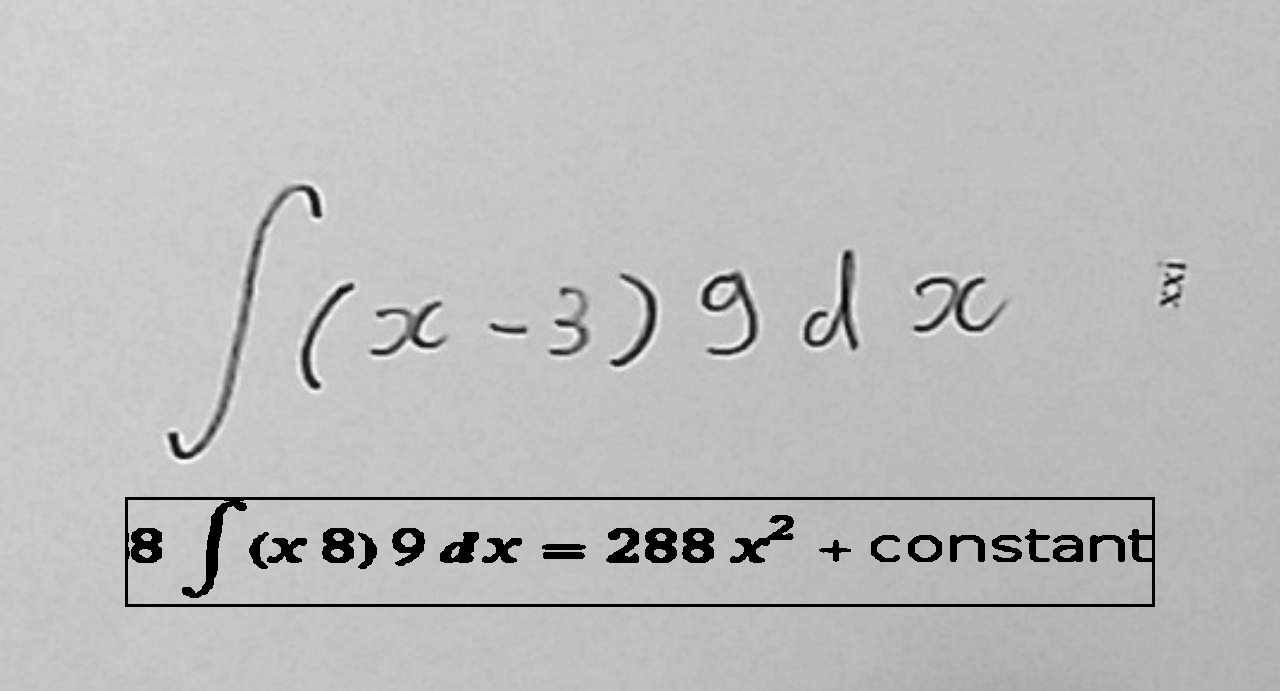 ∫(x-3) 9 d x
xxi
8 ∫(x 8) 9 dx = 288 x² + constant